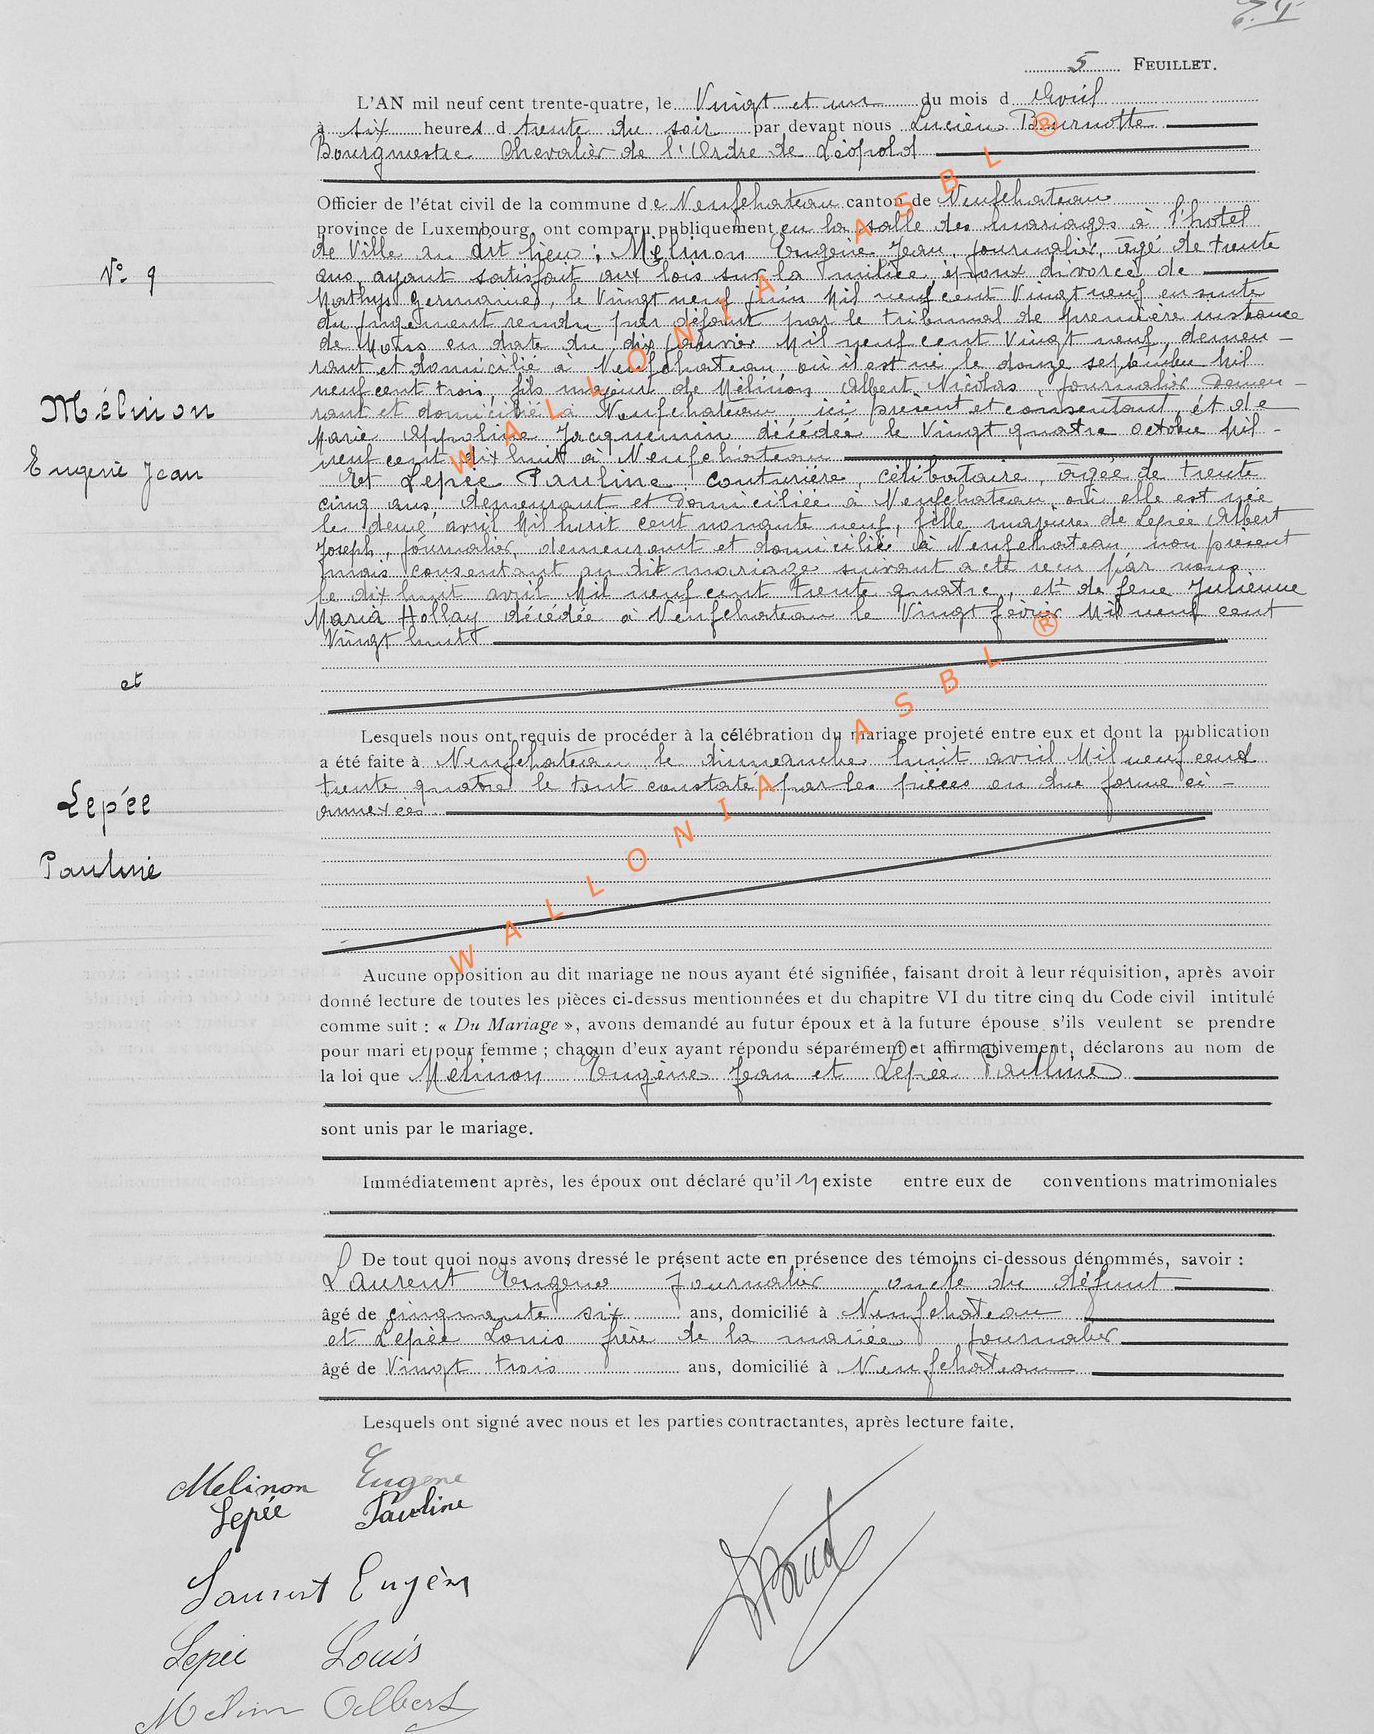 5 FEUILLET.
L'AN mil neuf cent trente-quatre, le Vingt et un du mois d Avril
à six heures d trente du soir par devant nous Lucien Bournotte
Bourgmestre Chevalier de l'Ordre de Léopold
Officier de l'état civil de la commune de Neufchateau canton de Neufchateau
province de Luxembourg, ont comparu publiquement en la salle des mariages à l'hotel
de Ville au dit lieu : Mélinon Eugène Jean, journalier, âgé de trente
ans, ayant satisfait aux lois sur la milice, époux divorcé de
Mathys Germaine, le Vingt neuf juin Mil neuf cent Vingt neuf ensuite
du jugement rendu par défaut par le tribunal de première instance
de Mons en date du dix janvier Mil neuf cent Vingt neuf, demeu-
rant et domicilié à Neufchateau, où il est né le douze septembre Mil
neuf cent trois, fils majeur de Mélinon Albert Nicolas journalier demeu-
rant et domicilié à Neufchateau ici présent et consentant, et de
Marie Appoline Jacquemin décédée le Vingt quatre octobre Mil-
neuf cent dix huit à Neufchâteau
Et Lepée Pauline couturière, célibataire, âgée de trente
cinq ans, demeurant et domiciliée à Neufchateau, où elle est née
le deux avril Mil huit cent nonante neuf, fille majeure de Lepée Albert
Joseph, journalier, demeurant et domicilié à Neufchateau, non présent
mais consentant au dit mariage suivant acte reçu par nous
le dix huit avril Mil neuf cent trente quatre, et de feue Julienne
Maria Hollay décédée à Neufchateau le Vingt fevrier Mil neuf cent
Vingt huit
N° 9
Mélinon
Eugène Jean
et
Lepée
Pauline
Lesquels nous ont requis de procéder à la célébration du mariage projeté entre eux et dont la publication
a été faite à Neufchateau le dimanche huit avril Mil neuf cent
trente quatre le tout constaté par les pièces en due forme ci-
annexées
Aucune opposition au dit mariage ne nous ayant été signifiée, faisant droit à leur réquisition, après avoir
donné lecture de toutes les pièces ci-dessus mentionnées et du chapitre VI du titre cinq du Code civil intitulé
comme suit : « Du Mariage », avons demandé au futur époux et à la future épouse s'ils veulent se prendre
pour mari et pour femme ; chacun d'eux ayant répondu séparément et affirmativement, déclarons au nom de
la loi que Mélinon Eugène Jean et Lepée Pauline
sont unis par le mariage.
Immédiatement après, les époux ont déclaré qu'il n existe entre eux de conventions matrimoniales
De tout quoi nous avons dressé le présent acte en présence des témoins ci-dessous dénommés, savoir :
Laurent Eugène journalier oncle du défunt
âgé de cinquante six ans, domicilié à Neufchateau
et Lepée Louis frère de la mariée journalier
âgé de Vingt trois ans, domicilié à Neufchateau
Lesquels ont signé avec nous et les parties contractantes, après lecture faite.
Melinon Eugene
Lepée Pauline
Laurent Eugèn
Lepée Louis
Melinon Albert
WALLONIA ASBL ®
WALLONIA ASBL ®